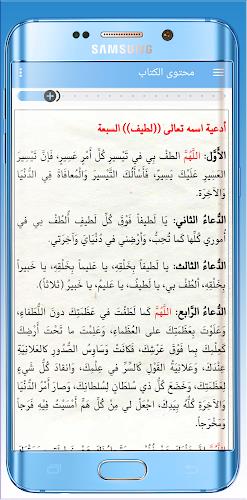 SAMSUNG
محتوى الكتاب
أدعية اسمه تعالى ((لطيف)) السبعة
الأَوَّل: اللَّهُمَّ الطفْ بِي في تَيْسِيرِ كُلِّ أَمْرٍ عَسِيرٍ، فَإِنَّ تَيْسِيرَ
العَسِيرِ عَلَيْكَ يَسِيرٌ، فَأَسْأَلُكَ التَّيْسِيرَ وَالْمُعَافَاةَ فِي الدُّنْيَا
وَالآخِرَةِ.
الدُّعاءُ الثاني: يَا لَطِيفاً فَوْقَ كُلِّ لَطِيفٍ أُلطُفْ بِي في
أُمورِي كُلِّها كَمَا تُحِبُّ، وَأَرْضِنِي في دُنْيَايَ وَآخِرَتِي.
الدُّعاءُ الثالث: يا لَطِيفاً بِخَلْقِهِ، يا عَلِيماً بِخَلْقِهِ، يا خَبِيراً
بِخَلْقِهِ، أُلطُف بي، يا لَطِيفُ، يا عَلِيمُ، يا خَبِيرُ (ثلاثاً).
الدُّعاءُ الرَّابع: اللَّهُمَّ كَمَا لَطَفْتَ في عَظَمَتِكَ دونَ اللُّطَفاءِ،
وَعَلَوْتَ بِعَظَمَتِكَ على العُظَماءِ، وَعَلِمْتَ ما تَحْتَ أَرْضِكَ
كَعِلْمِكَ بِما فَوْقَ عَرْشِكَ، فَكَانَتْ وَسَاوِسُ الصُّدُورِ كَالعَلانِيَةِ
عِنْدَكَ، وَعَلانِيَةُ القَوْلِ كَالسِّرِّ في عِلْمِكَ، وَانقادَ كُلُّ شَيءٍ
لِعَظَمَتِكَ، وَخَضَعَ كُلُّ ذي سُلطانٍ لِسُلطانِكَ، وَصارَ أَمْرُ الدُّنْيا
وَالآخِرَةِ كُلُّهُ بِيَدِكَ، اجعَل لي مِن كُلِّ هَمٍّ أَمْسَيْتُ فِيهِ فَرَجاً
وَمَخْرَجاً.